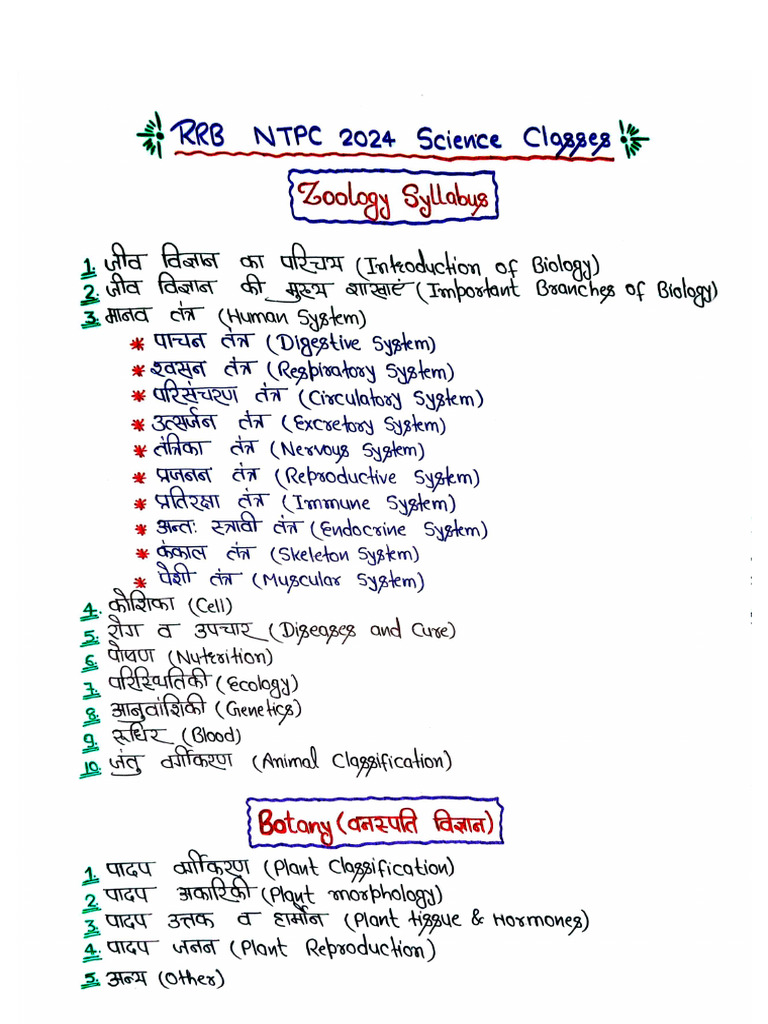 RRB NTPC 2024 Science Classes
Zoology Syllabus
1. जीव विज्ञान का परिचय (Introduction of Biology)
2. जीव विज्ञान की मुख्य शाखाएं (Important Branches of Biology)
3. मानव तंत्र (Human System)
* पाचन तंत्र (Digestive System)
* श्वसन तंत्र (Respiratory System)
* परिसंचरण तंत्र (Circulatory System)
* उत्सर्जन तंत्र (Excretory System)
* तंत्रिका तंत्र (Nervous System)
* प्रजनन तंत्र (Reproductive System)
* प्रतिरक्षा तंत्र (Immune System)
* अन्तः स्त्रावी तंत्र (Endocrine System)
* कंकाल तंत्र (Skeleton System)
* पेशी तंत्र (Muscular System)
4. कोशिका (Cell)
5. रोग व उपचार (Diseases and Cure)
6. पोषण (Nutrition)
7. परिस्थितिकी (Ecology)
8. आनुवांशिकी (Genetics)
9. रूधिर (Blood)
10. जंतु वर्गीकरण (Animal Classification)
Botany (वनस्पति विज्ञान)
1. पादप वर्गीकरण (Plant Classification)
2. पादप अकारिकी (Plant morphology)
3. पादप उत्तक व हार्मोन (Plant tissue & Hormones)
4. पादप जनन (Plant Reproduction)
5. अन्य (Other)